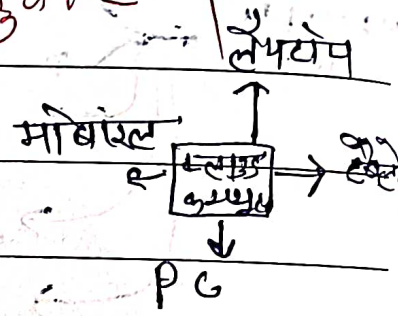 लैपटोप
मोबांइल
क्लाउड
कम्प्यूट
P C